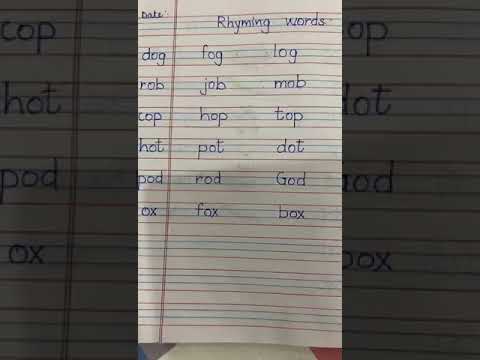 Date:
Rhyming words
dog fog log
rob job mob
cop hop top
hot pot dot
pod rod God
ox fox box